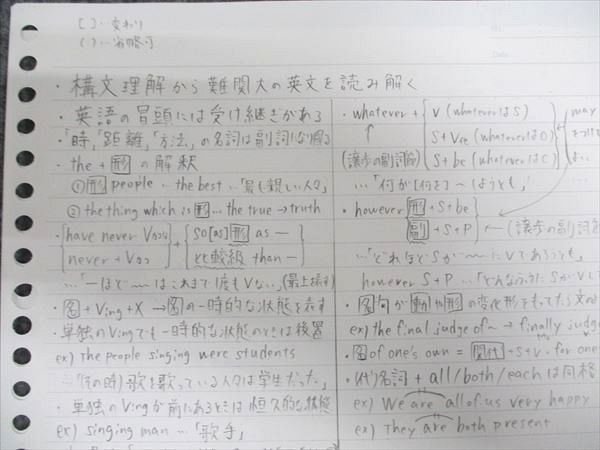 [ ]…変わり
( )…省略可
・構文理解から難関大の英文を読み解く
・英語の冒頭には受け継ぎがある
・「時」「距離」「方法」の名詞は副詞になり得る
・the + 形 の解釈
① 形 people … the best …「最も親しい人々」
② the thing which is 形 … the true → truth
・have never Vpp + so[as] 形 as ―
never + Vpp 比較級 than ―
…「―ほど〜はこれまで1度もVない」(最上級)
・名 + Ving + X → 名の一時的な状態を表す
・単独のVingでも一時的な状態のときは後置
ex) The people singing were students
…「(その時)歌を歌っている人々は学生だった」
・単独のVingが前にあるときは恒久的な状態
ex) singing man …「歌手」
Date
・whatever + V (whateverはS)
S+Vre (whateverはO)
(譲歩の副詞節) S+be (whateverはC)
may
…「何が[何を]〜しようとも」
・however 形 +S+be
副 +S+P ← (譲歩の副詞節
…「どれほどSが〜にVであろうとも」
however S+P …「どんなふうにSがVして
・名句が動や形の変化形をもってたら文の
ex) the final judge of〜 → finally judge
・名 of one's own = 関代+S+V・for one
・(代)名詞 + all/both/each は同格
ex) We are all of us very happy
ex) They are both present